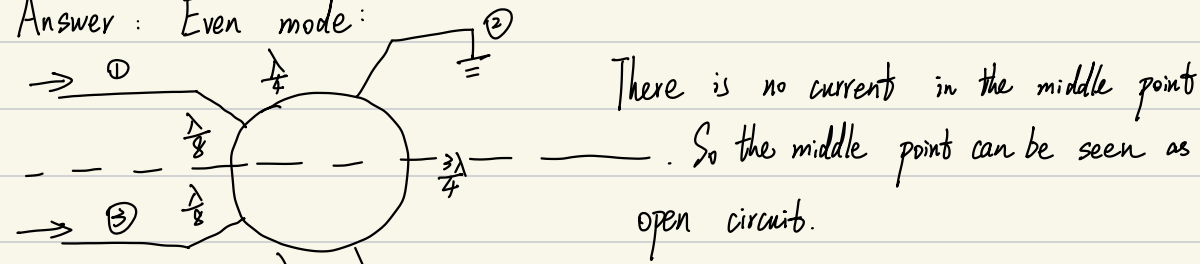 Answer : Even mode :
②
①
λ/4
There is no current in the middle point
λ/8
3λ/4
. So the middle point can be seen as
③
λ/8
open circuit.